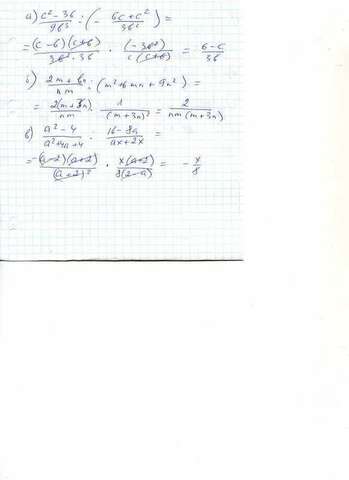 а) (c² - 36)/(9b³) : (- (6c + c²)/(3b²)) =
= ((c - 6)(c + 6))/(3b² · 3b) · (-3b²)/(c(c + 6)) = (6 - c)/(3b)
б) (2m + 6n)/(nm) : (m² + 6mn + 9n²) =
= (2(m + 3n))/(nm) · 1/(m + 3n)² = 2/(nm(m + 3n))
в) (a² - 4)/(a² + 4a + 4) : (16 - 8a)/(ax + 2x) =
= -((a - 2)(a + 2))/(a + 2)² · (x(a + 2))/(8(2 - a)) = - x/8